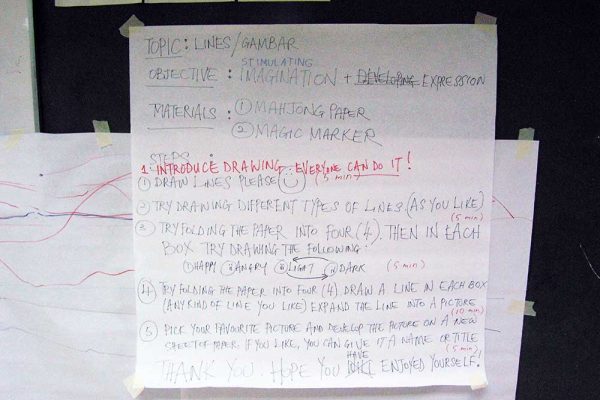 TOPIC: LINES/GAMBAR
STIMULATING
OBJECTIVE: IMAGINATION + DEVELOPING EXPRESSION
MATERIALS: ① MAHJONG PAPER
② MAGIC MARKER
STEPS:
1. INTRODUCE DRAWING: EVERYONE CAN DO IT!
① DRAW LINES PLEASE (5 min)
② TRY DRAWING DIFFERENT TYPES OF LINES (AS YOU LIKE)
(5 min)
③ TRY FOLDING THE PAPER INTO FOUR (4). THEN IN EACH
BOX TRY DRAWING THE FOLLOWING:
① HAPPY ② ANGRY ③ LIGHT ④ DARK (5 min)
④ TRY FOLDING THE PAPER INTO FOUR (4) DRAW A LINE IN EACH BOX
(ANY KIND OF LINE YOU LIKE) EXPAND THE LINE INTO A PICTURE
(10 min)
⑤ PICK YOUR FAVOURITE PICTURE AND DEVELOP THE PICTURE ON A NEW
SHEET OF PAPER. IF YOU LIKE, YOU CAN GIVE IT A NAME OR TITLE
(5 min)
HAVE
THANK YOU. HOPE YOU ENJOYED YOURSELF!